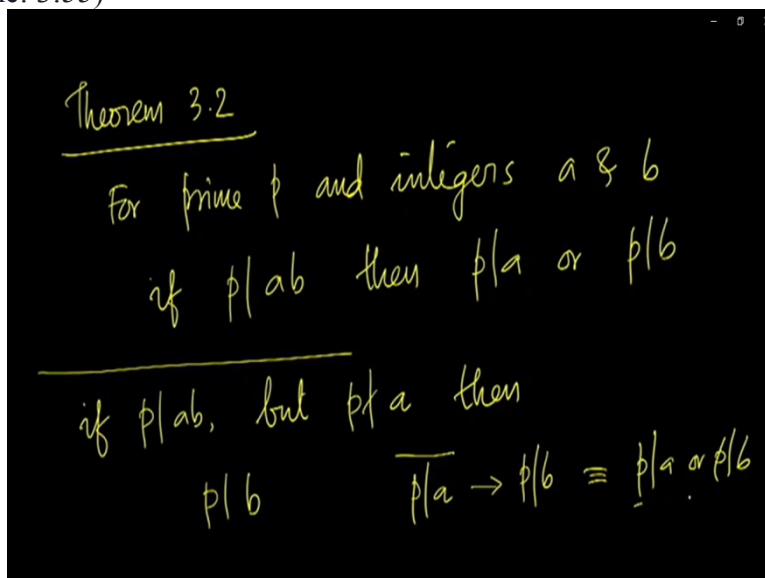 Theorem 3.2
For prime p and integers a & b
if p|ab then p|a or p|b
if p|ab, but p∤a then
p|b  p̅|̅a̅ → p|b ≡ p|a or p|b